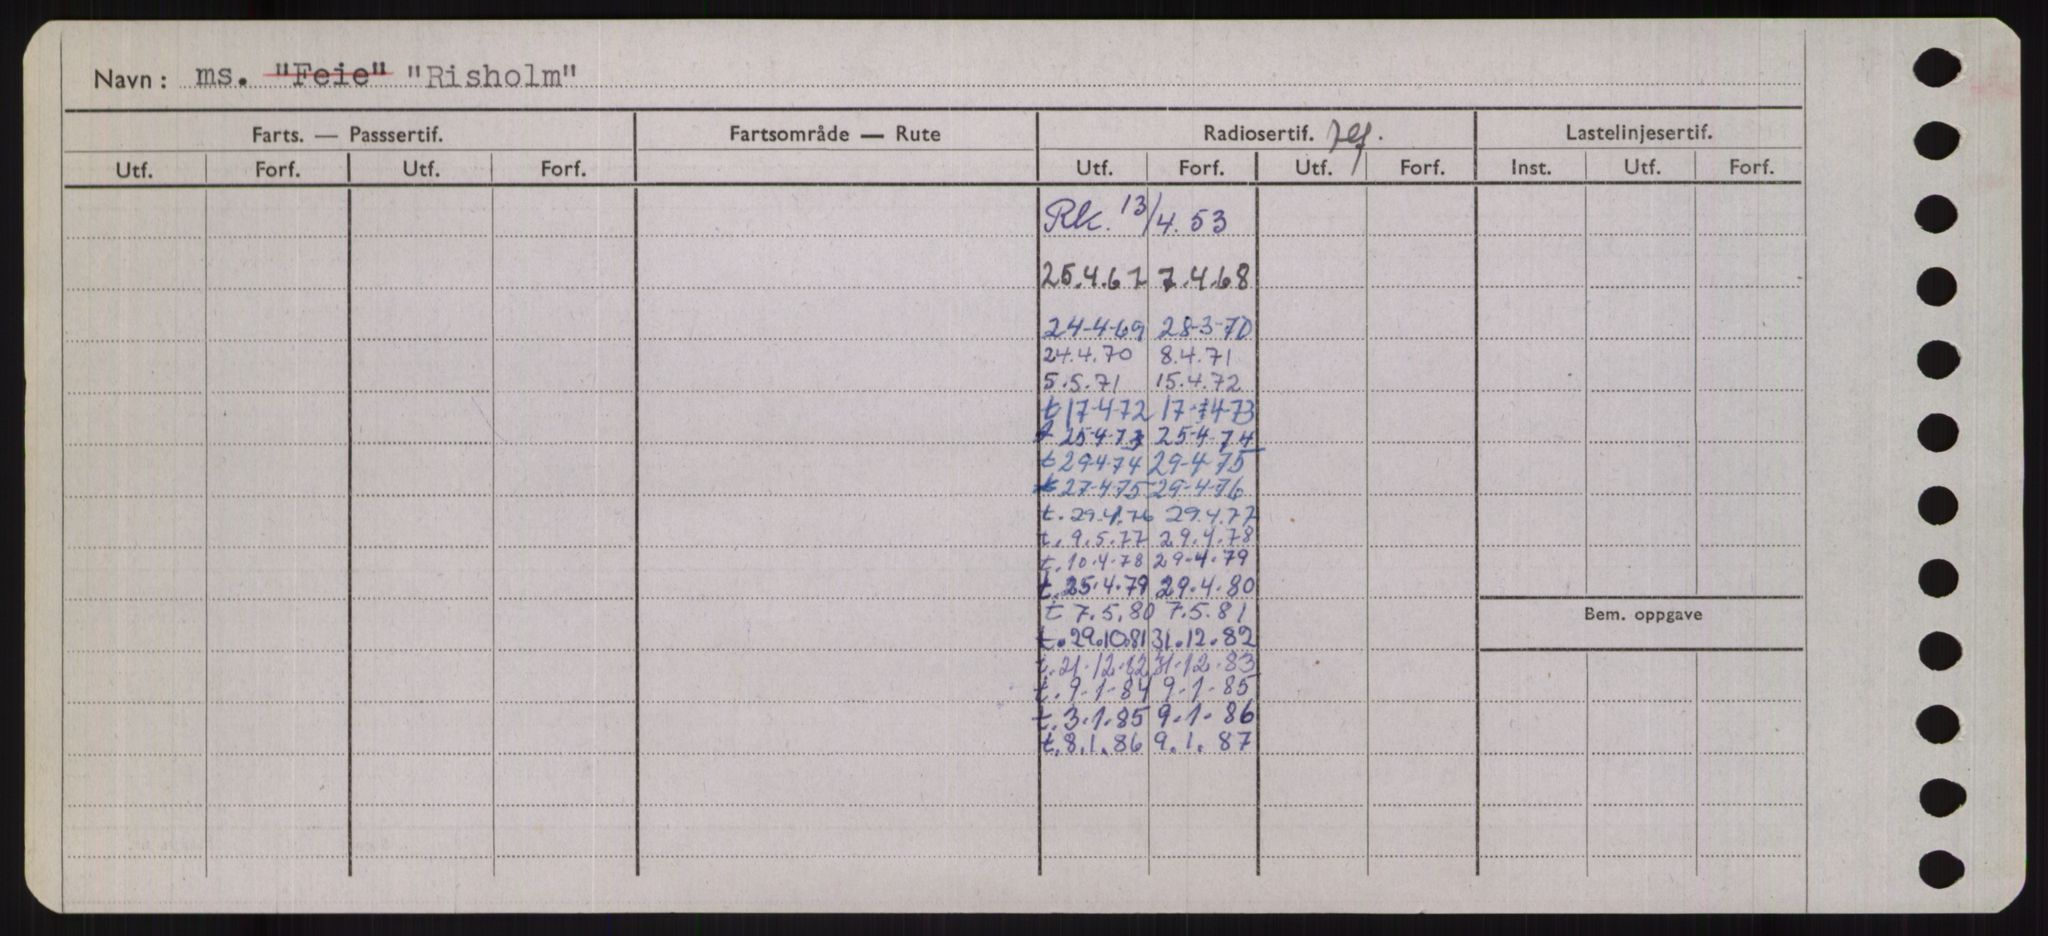 Navn: ms. "Feie" "Risholm"
Farts. — Passsertif. Fartsområde — Rute Radiosertif. Lastelinjesertif.
Utf. Forf. Utf. Forf. Utf. Forf. Utf. Forf. Inst. Utf. Forf.
Rk. 13/4.53
25.4.67 7.4.68
24-4-69 28-3-70
24.4.70 8.4.71
5.5.71 15.4.72
t 17-4-72 17-4-73
t 25-4-73 25-4-74
t 29-4-74 29-4-75
t 27-4-75 29-4-76
t. 29.4.76 29.4.77
t. 9.5.77 29.4.78
t. 10.4.78 29-4.79
t. 25.4.79 29.4.80
t 7.5.80 7.5.81
Bem. oppgave
t. 29.10.81 31.12.82
t. 21.12.82 31.12.83
t. 9-1-84 9-1-85
t. 3.1.85 9.1.86
t. 8.1.86 9.1.87